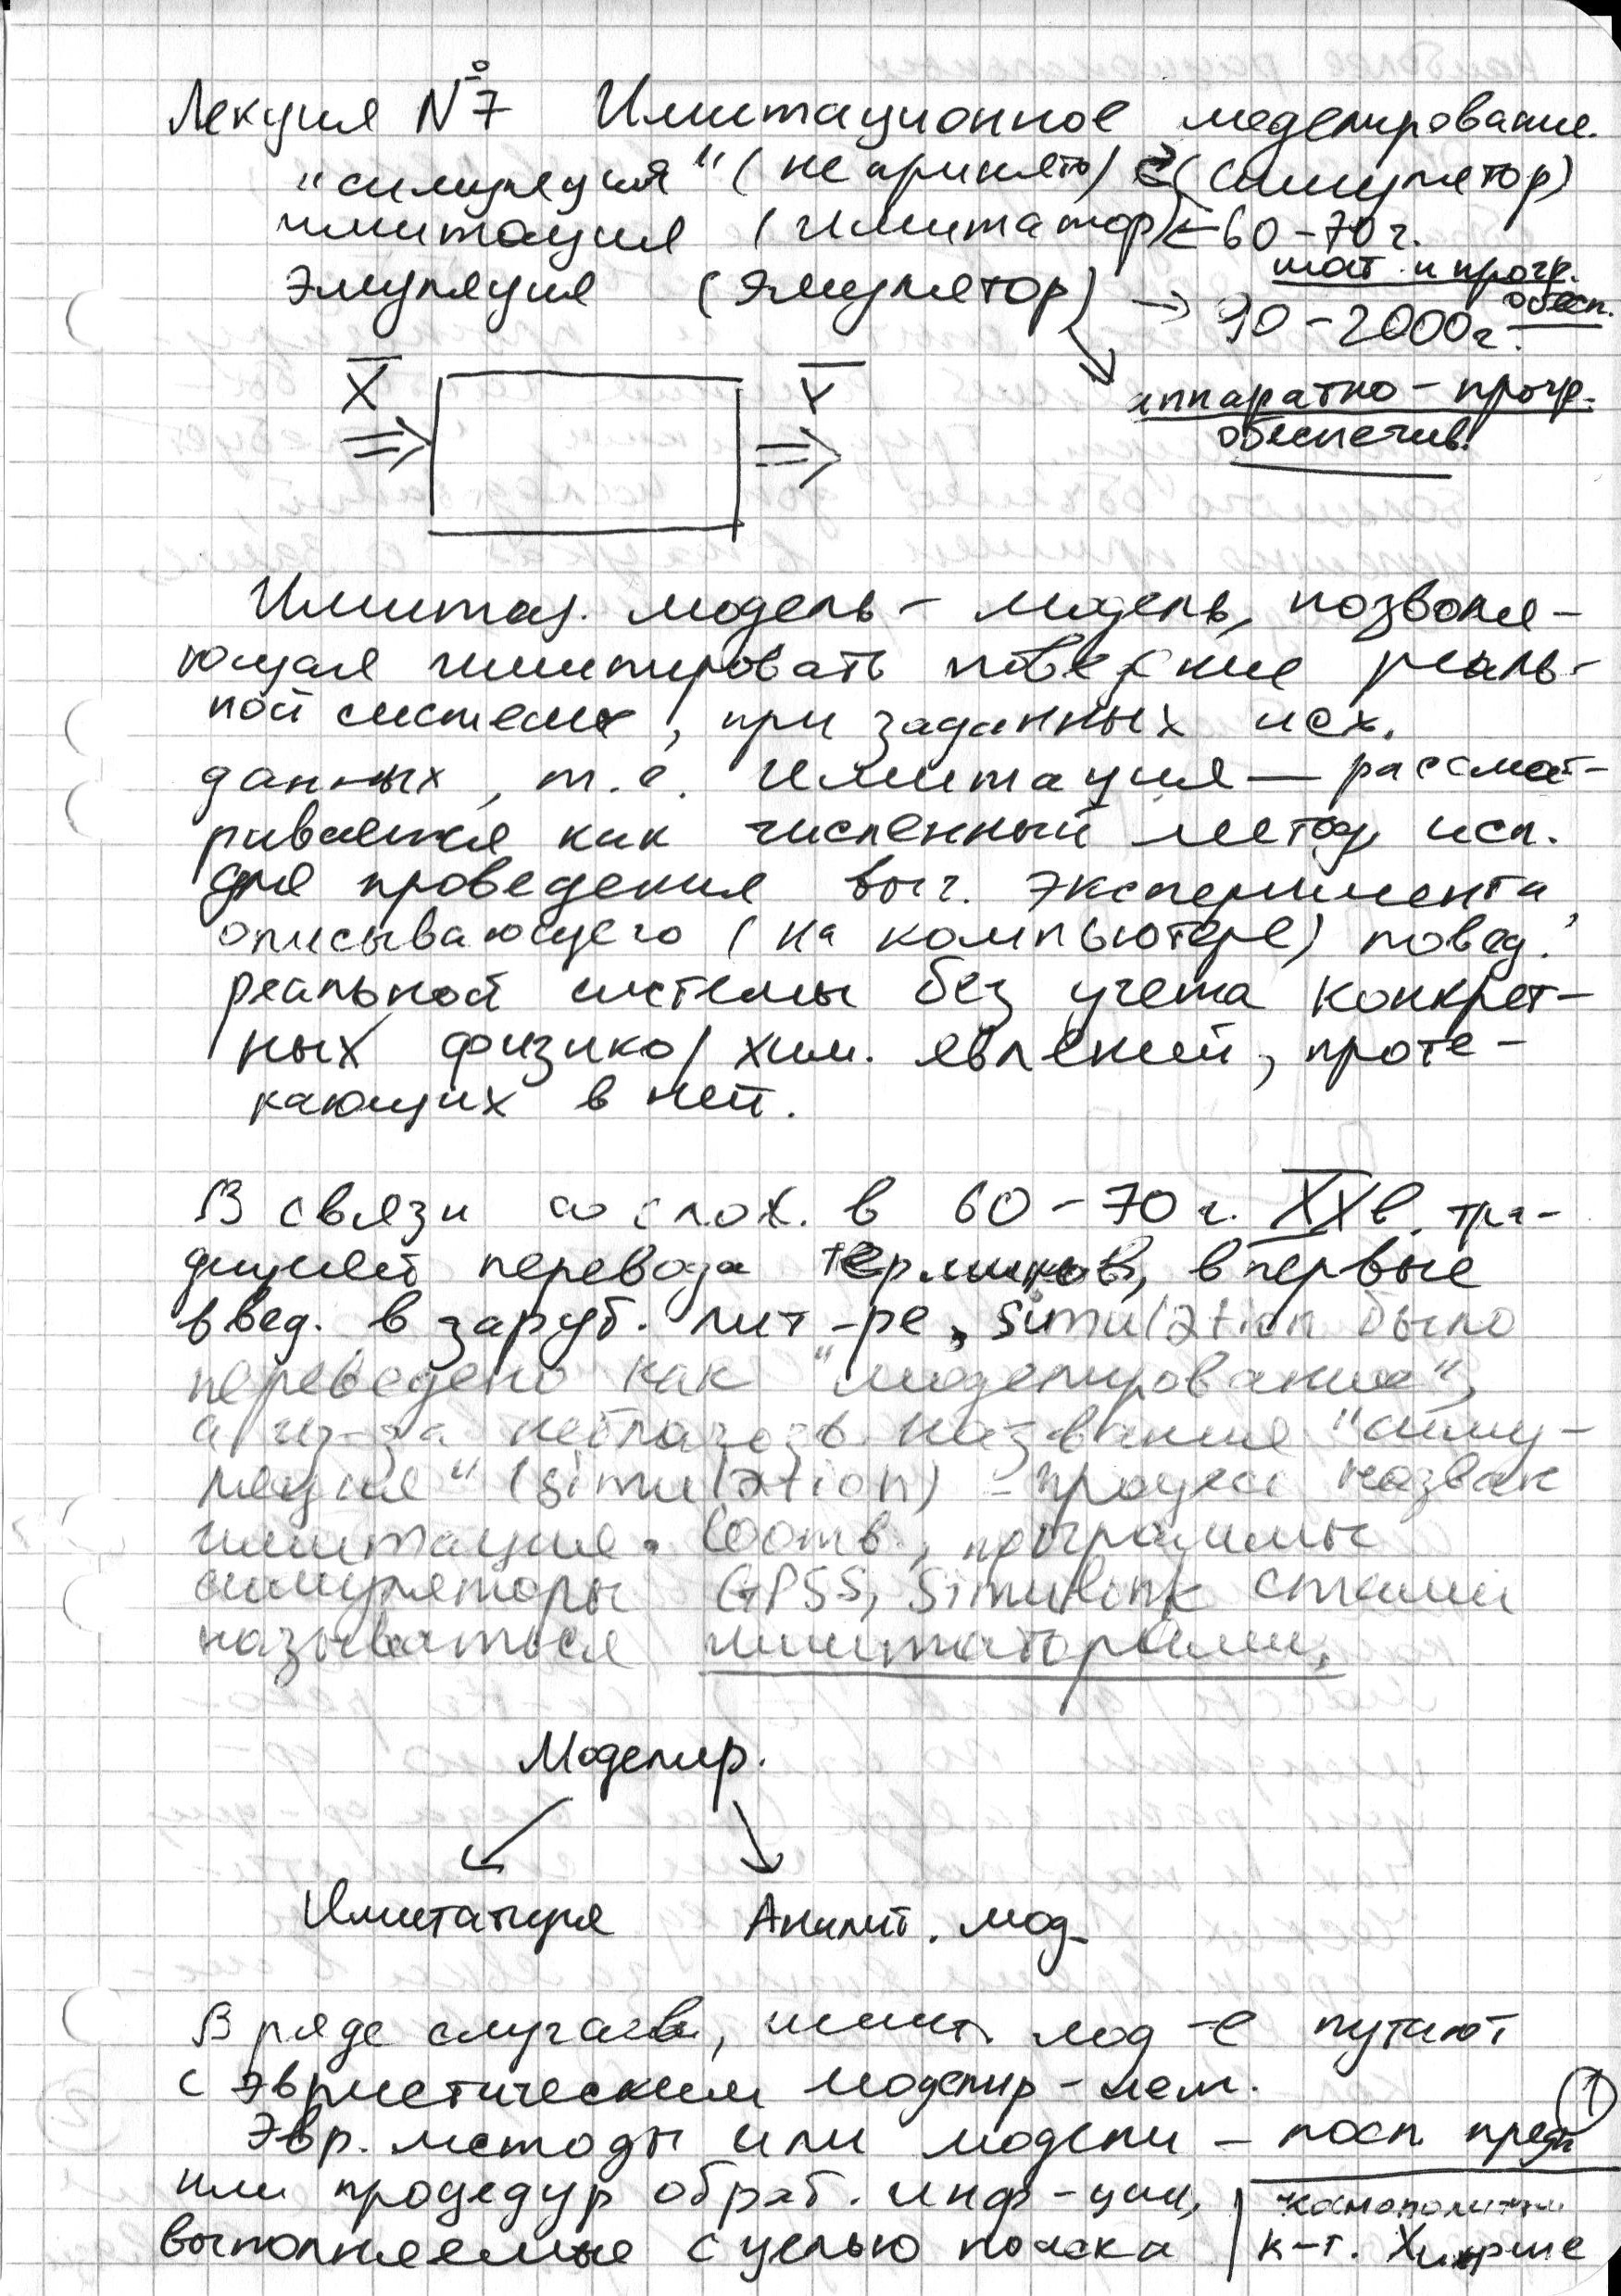 Лекция №7 Имитационное моделирование.
"симуляция" (не принято) (симулятор)
имитация (имитатор) ← 60-70г.
мат. и прогр.
обесп.
эмуляция (эмулятор) → 90-2000г.
аппаратно-прогр.
обеспечив.
X Y
Имитац. модель - модель, позволя-
ющая имитировать поведение реаль-
ной системы, при заданных исх.
данных, т.е. имитация — рассмат-
ривается как численный метод исп.
для проведения выч. эксперимента,
описывающего (на компьютере) повед.
реальной системы без учета конкрет-
ных физико/хим. явлений, проте-
кающих в ней.
В связи со слож. в 60-70г. XXв. тра-
дицией перевода терминов, впервые
введ. в заруб. лит-ре, simulation было
переведено как "моделирование",
а из-за неблагозв. название "симу-
ляция" (simulation) - процесс назван
имитация. Соотв., программы
симуляторы GPSS, Simulink стали
называться имитаторами.
Моделир.
Имитация Аналит. мод.
В ряде случаев, имит. мод-е путают
с эвристическим моделир-ием.
1
Эвр. методы или модели - посл. пред
или процедур обраб. инф-ции,
выполняемые с целью поиска
к-т.